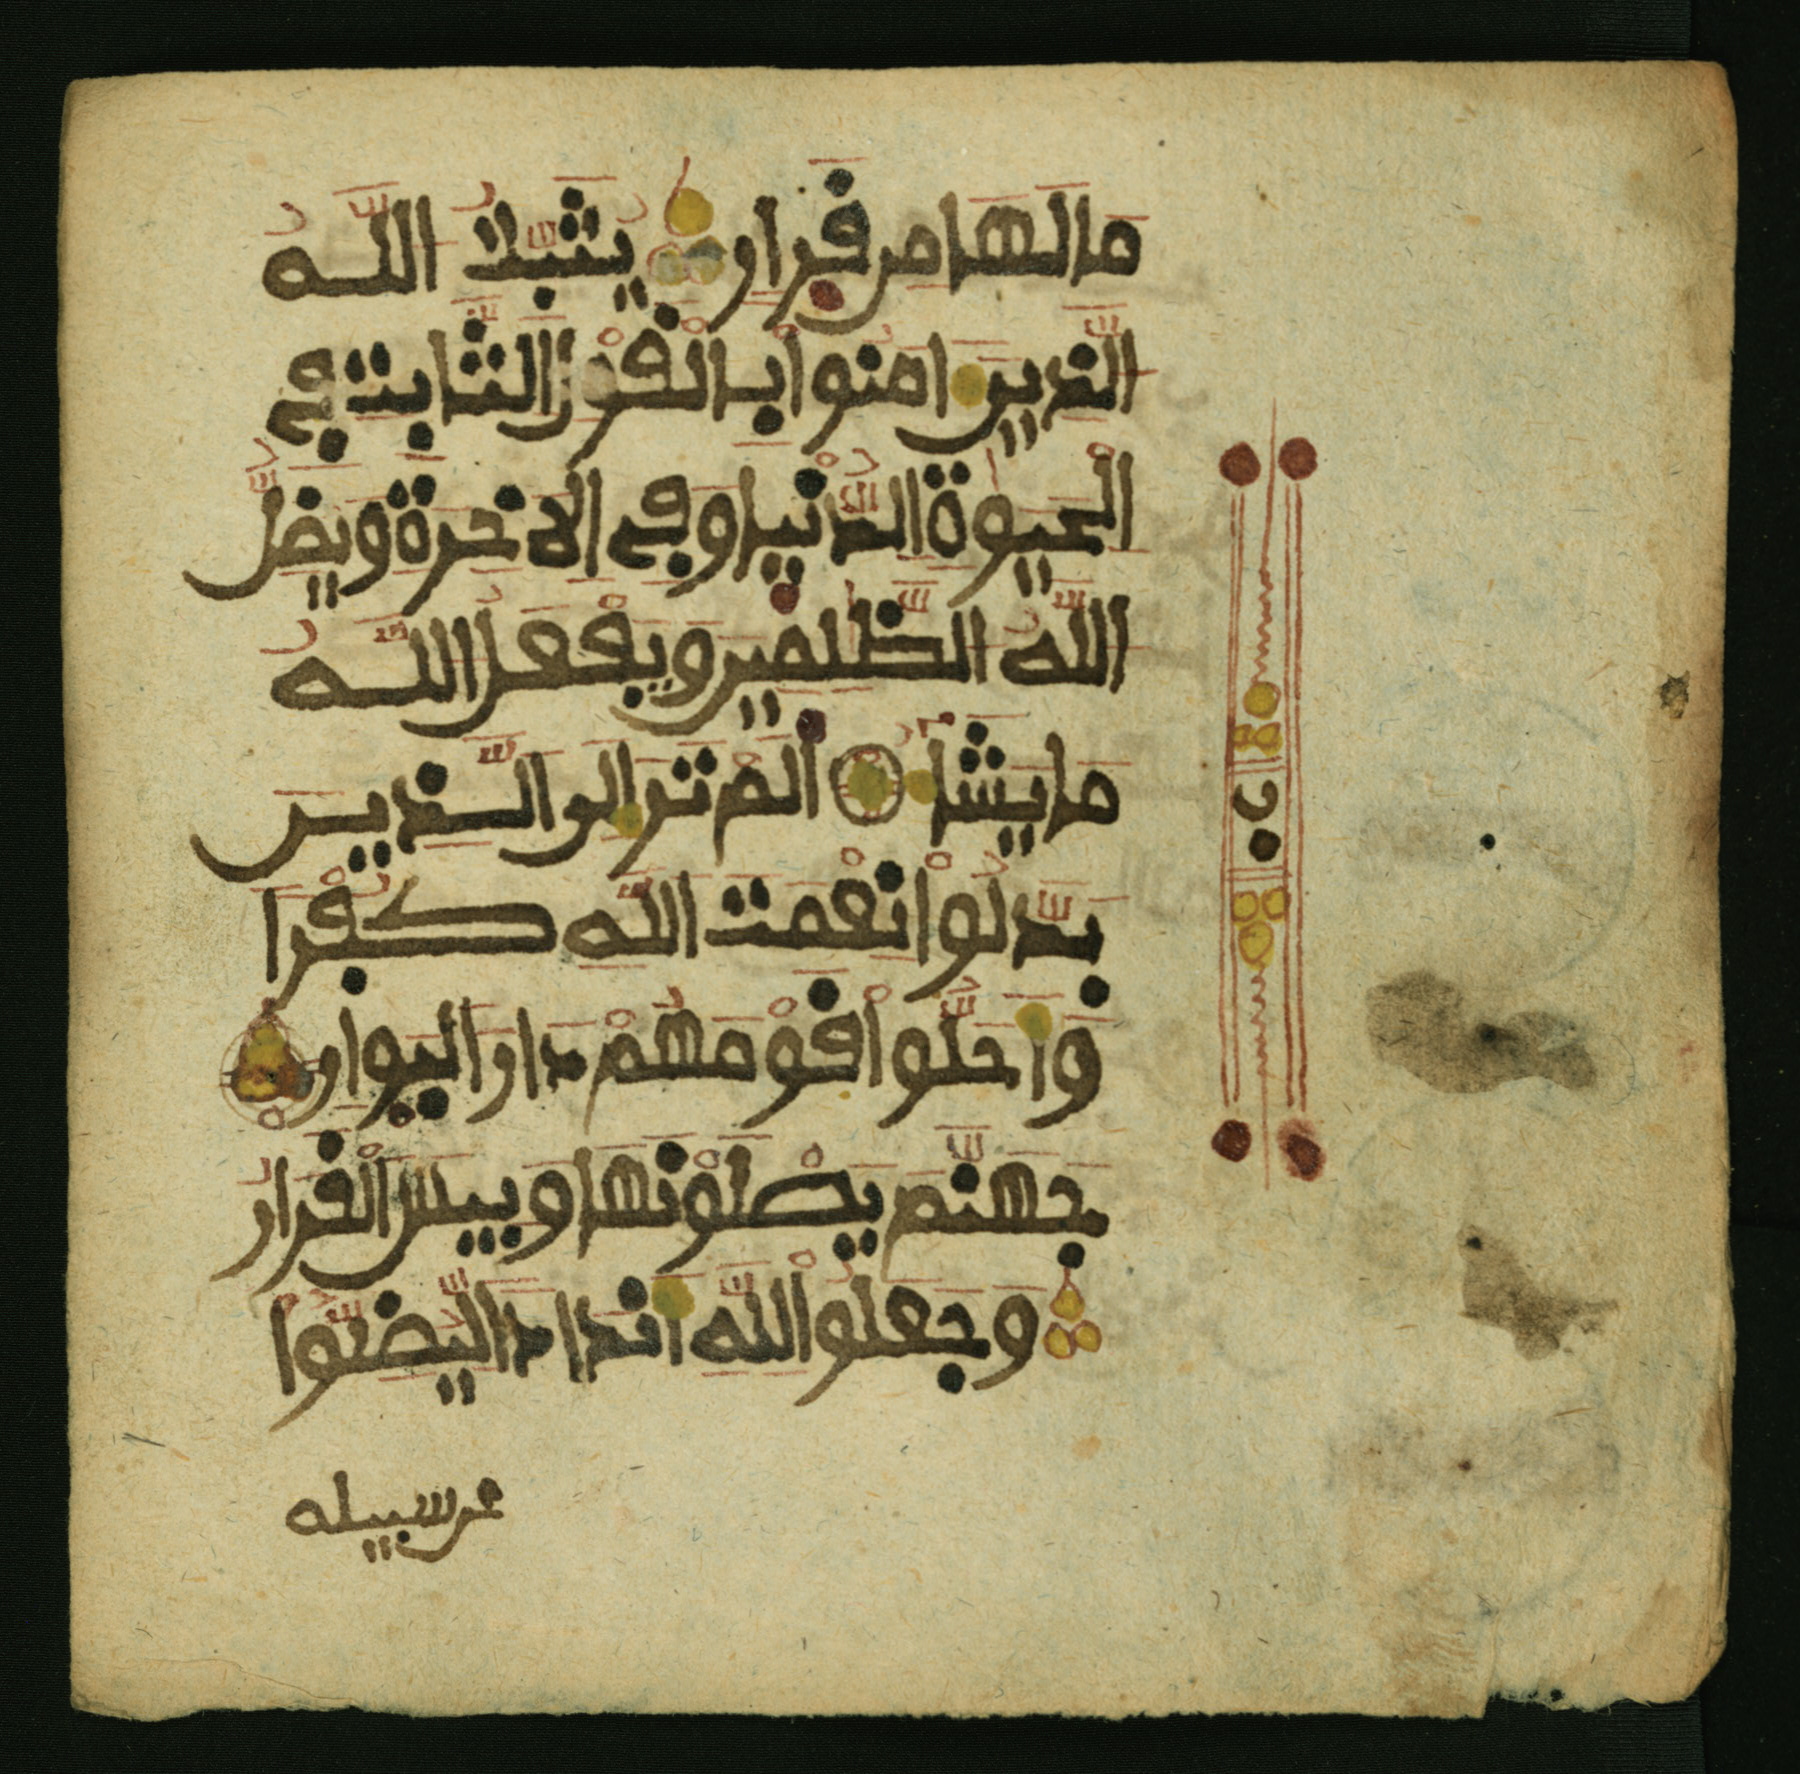 ما لها من فرار يثبت الله
الذين امنوا بالقول الثابت في
الحيوة الدنيا وفي الاخرة ويضل
الله الظلمين ويفعل الله
ما يشا الم تر الى الذين
بدلوا نعمت الله كفرا
واحلوا قومهم دار البوار
جهنم يصلونها وبيس القرار
وجعلوا لله اندادا ليضلوا
عن سبيله